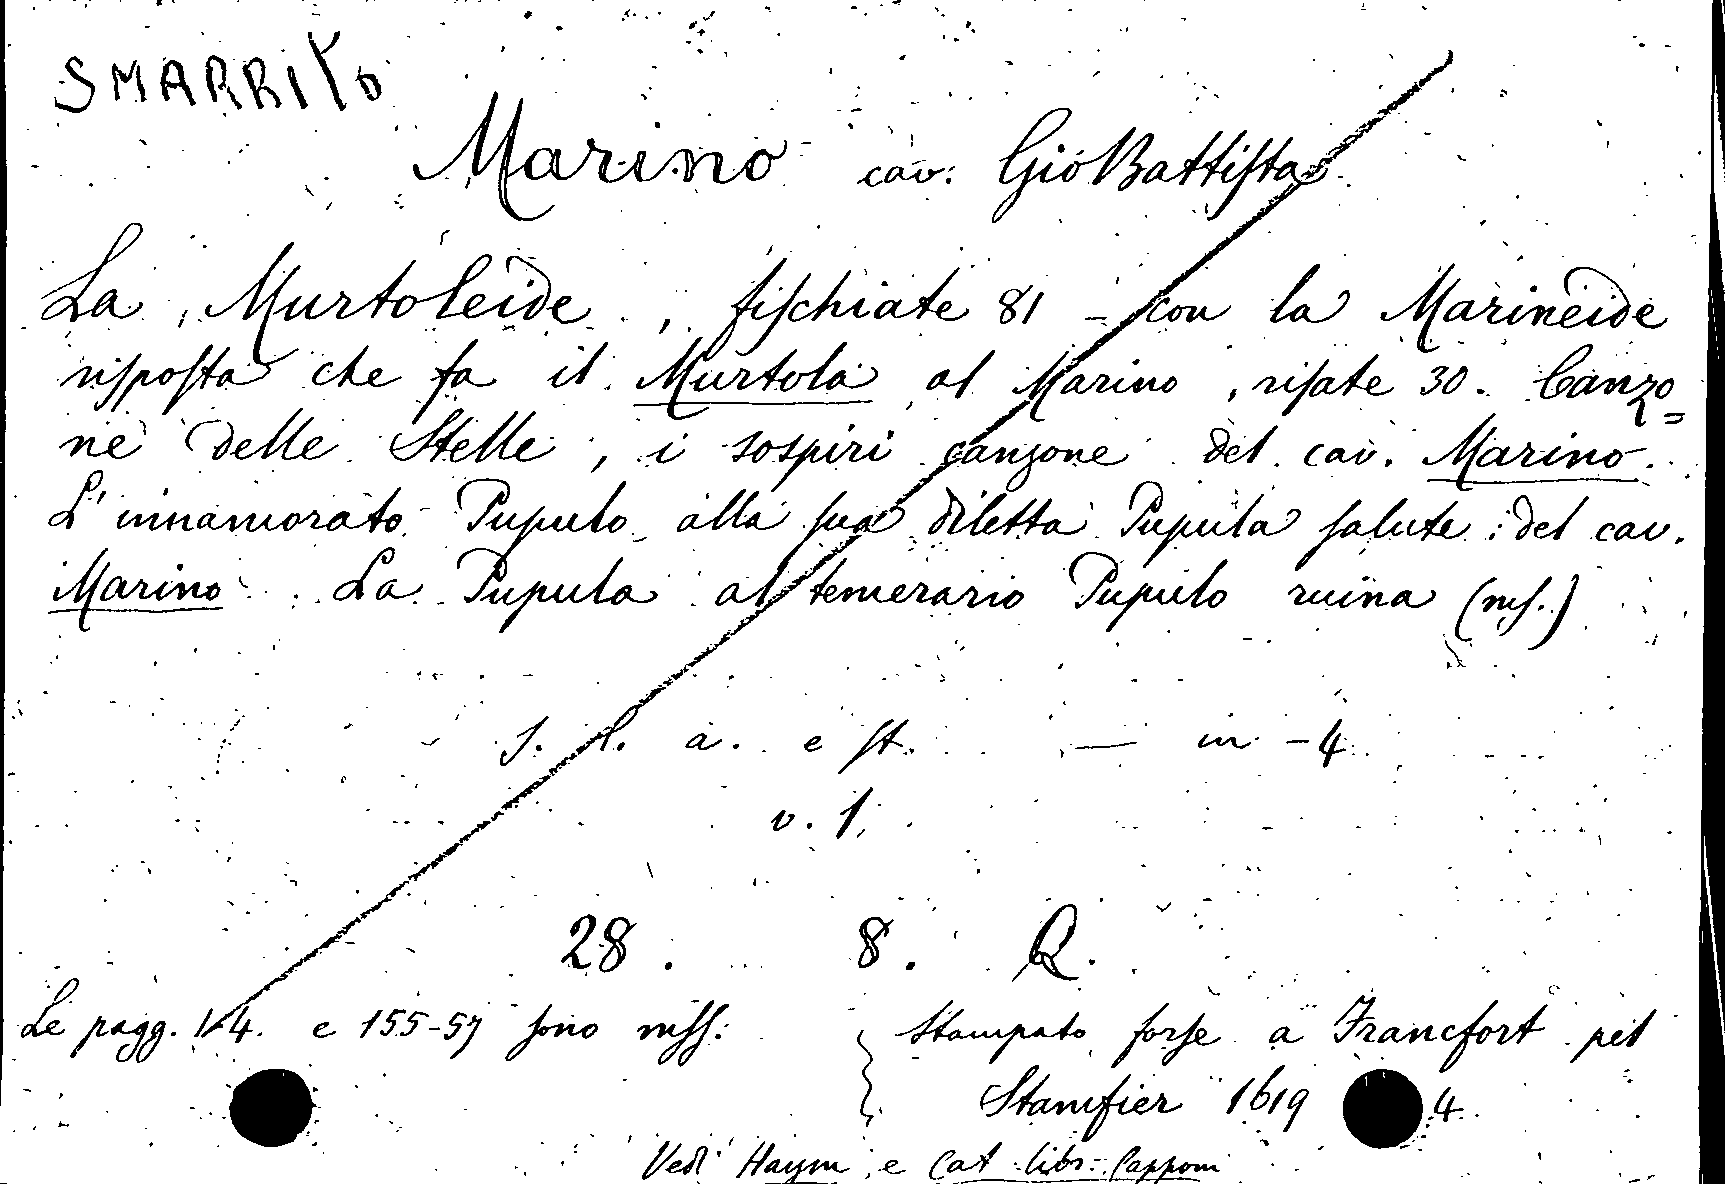 SMARRITO
Marino cav. Gio Battista
La Murtoleide, fischiate 81 - con la Marineide
risposta che fa il Murtola al Marino, risate 30. Canzo=
ne delle Stelle, i sospiri canzone del cav. Marino.
L'innamorato Pupulo alla sua diletta Pupula salute: del cav.
Marino. La Pupula al temerario Pupulo ruina (ms.)
s. l. a. e st. — in-4
v. 1.
28. 8. Q.
Le pagg. 1-4. e 155-57 sono mss:
Stampato forse a Francfort pel
Stamfier 1619 4.
Vedi Haym e Cat. libr. Capponi